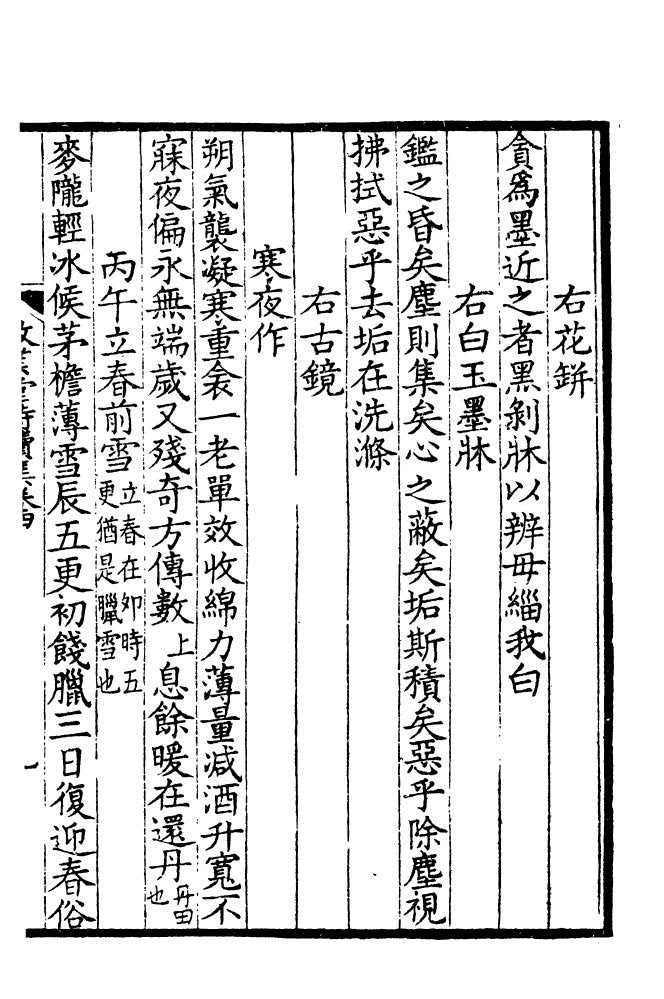 右花缾
貪為墨近之者黑剝牀以辨毋緇我白
右白玉墨牀
鑑之昏矣塵則集矣心之蔽矣垢斯積矣惡乎除塵視
拂拭惡乎去垢在洗滌
右古鏡
寒夜作
朔氣襲凝寒重衾一老單效收綿力薄量減酒升寬不
寐夜偏永無端歲又殘奇方傳數上息餘暖在還丹丹田也
丙午立春前雪立春在夘時五更猶是臘雪也
麥隴輕冰候茅檐薄雪辰五更初餞臘三日復迎春俗